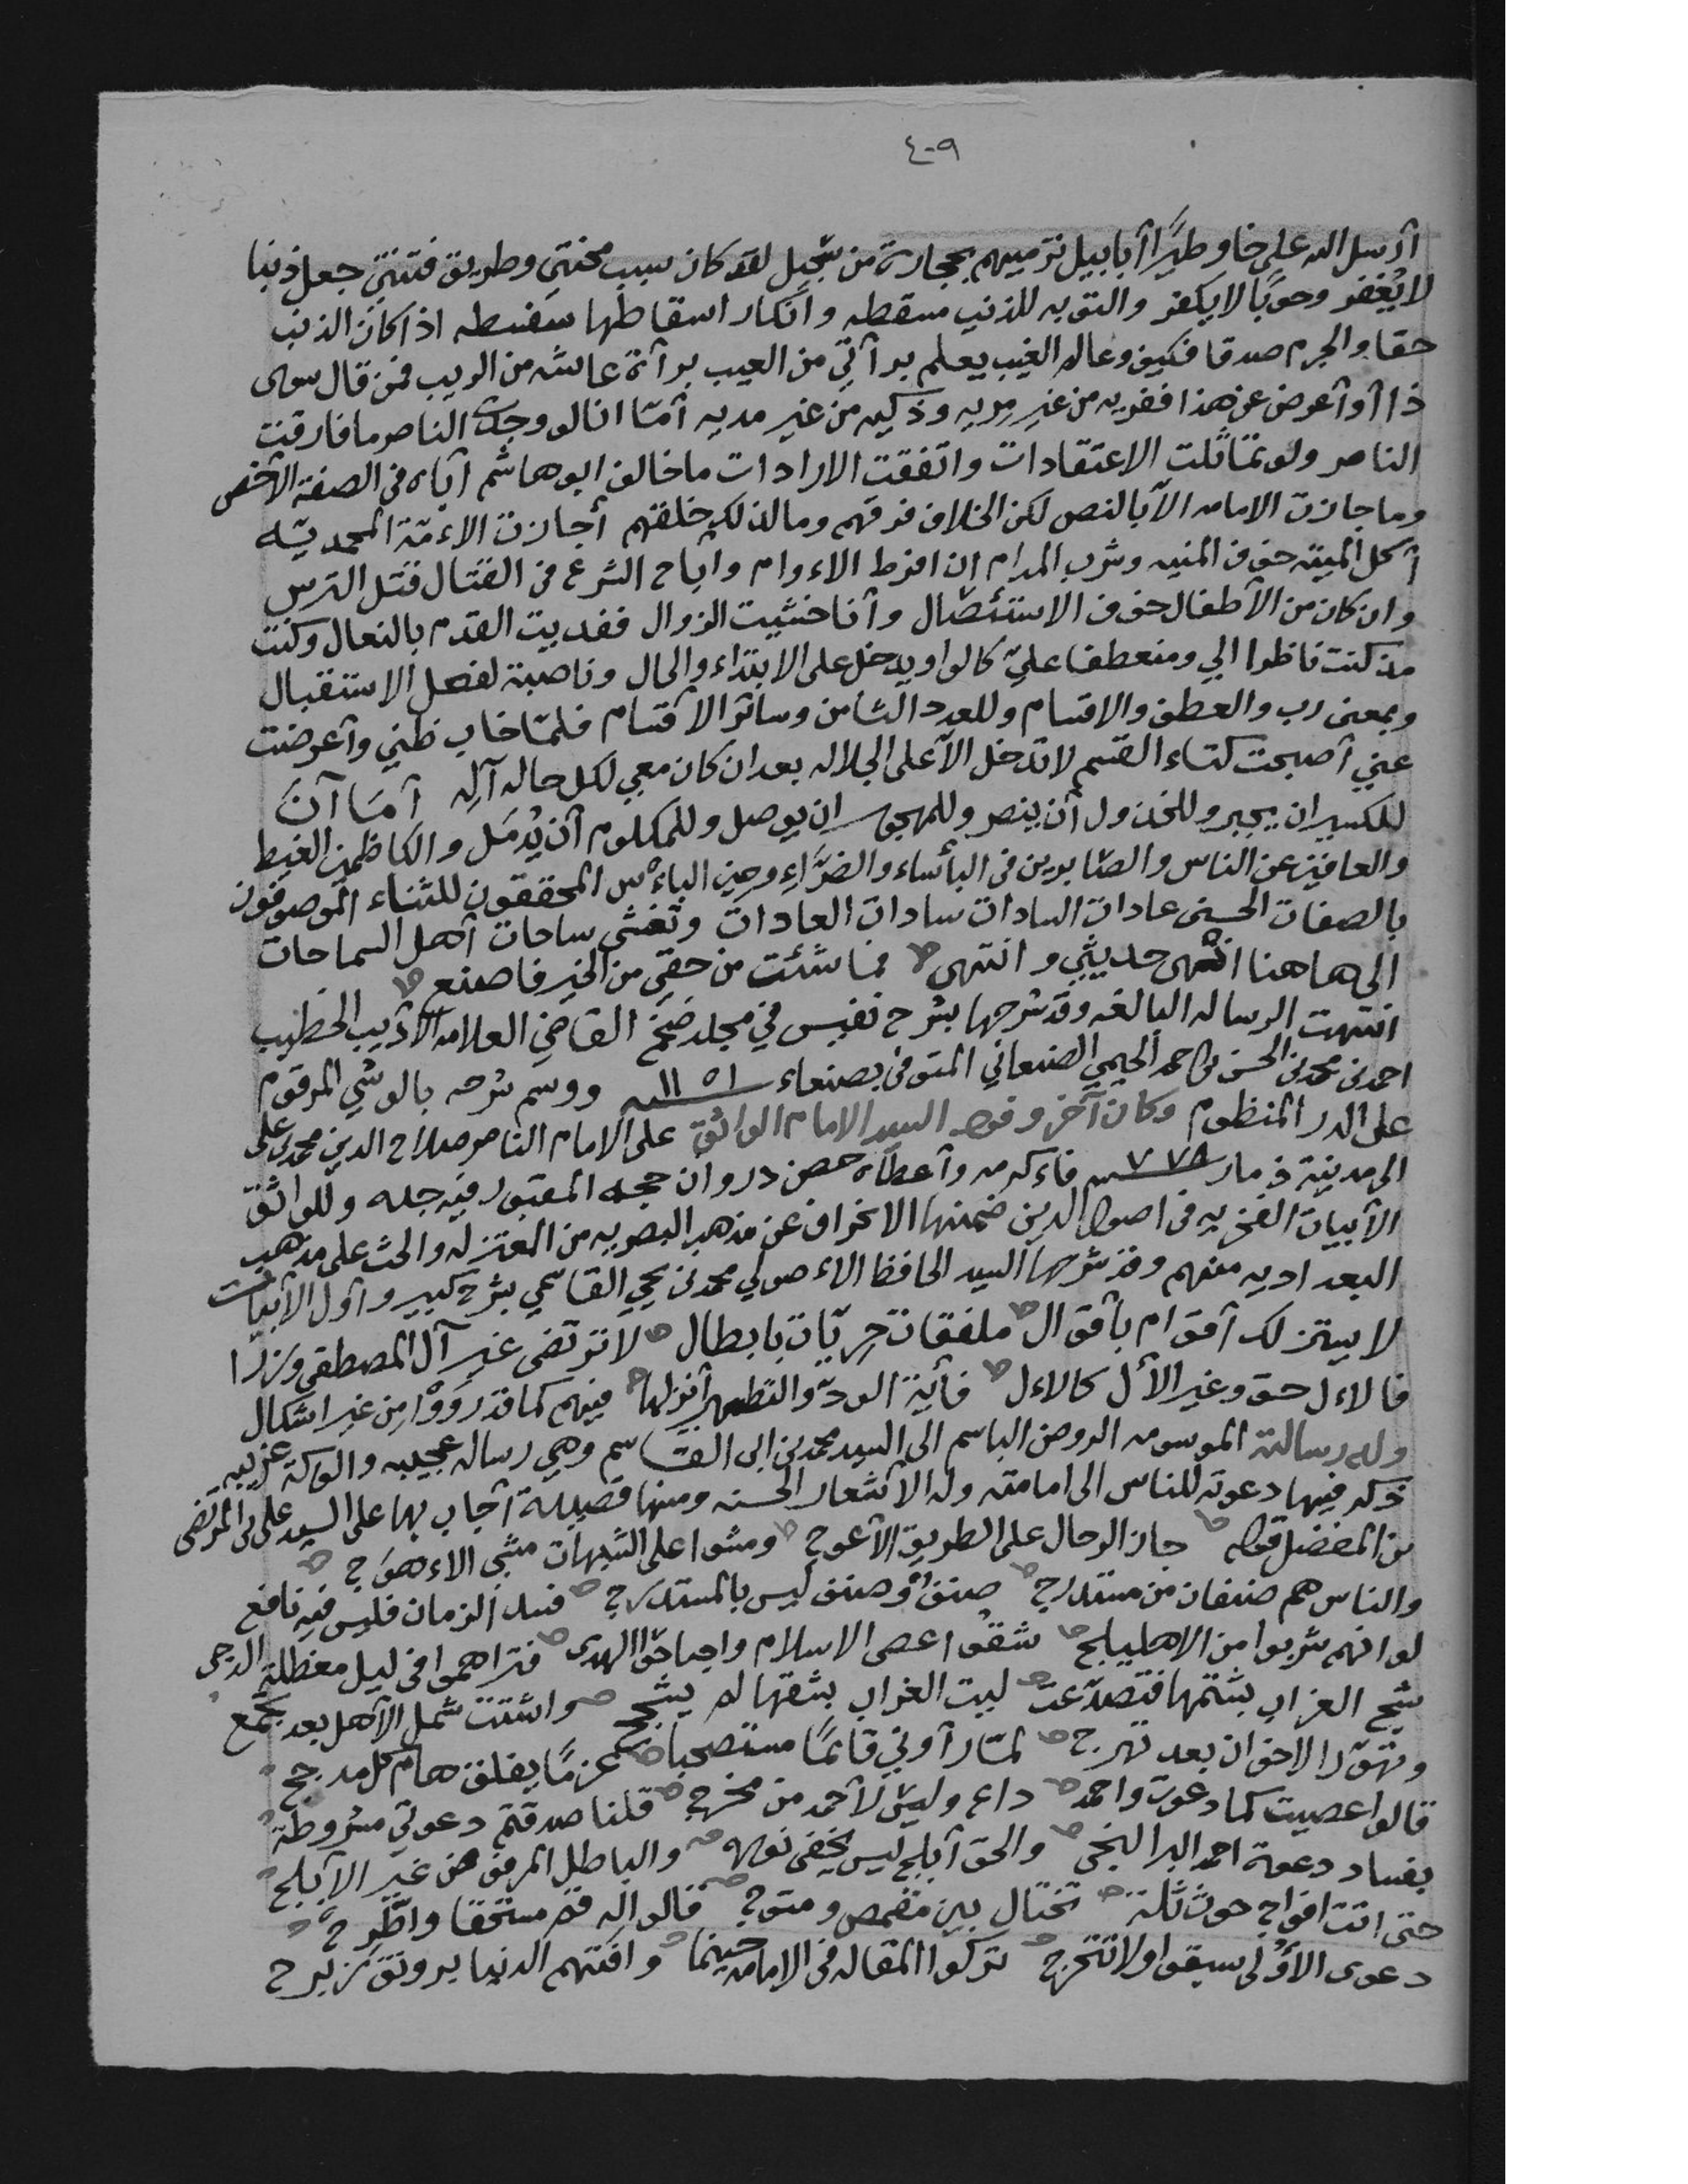 ٤٠٩
أرسل الله على خاوطيرًا أبابيل ترميهم بحجارة من سجيل لقد كان سبب محنتي وطريق فتنتي جعل ذنبا
لا يُغفر وحوبًا لا يكفر والتوبه للذنب مسقطه وانكار اسقاطها سفسطه اذا كان الذنب
حقا والجرم صدقا فكيف وعالم الغيب يعلم برآتي من العيب برآة عايشه من الريب فمن قال سوى
ذا أو أعرض عن هذا ففريه من غير مريه وذكيه من غير مديه أمّا انا لو وجدت الناصر ما فارقت
الناصر ولو تماثلت الاعتقادات واتفقت الارادات ما خالف ابو هاشم أباه في الصفة الأخص
وما جازت الامامه الاّ بالنص لكن الخلاف فرقهم ولذلك خلقهم أجازت الاءمّة المحمديّه
أكل الميته خوف المنيه وشرب المدام ان افرط الاءوام واباح الشرع في القتال قتل الترس
وان كان من الأطفال خوف الاستئصال وأنا خشيت الزوال ففديت القدم بالنعال وكنت
مذ كنت ناظرا الي ومنعطفا عليّ كالواو يدخل على الابتداء والحال وناصبة لفعل الاستقبال
وبمعنى رب والعطف والاقسام وللعدد الثامن وسائر الأقسام فلمّا خاب ظني وأعرضت
عني أصبحت كتاء القسم لا تدخل الاّ على الجلاله بعد ان كان معي لكل حاله آله أمَا آنَ
للكسير ان يجبر وللمخذول أن ينصر وللمهجور ان يوصل وللمكلوم أن يُدمَل والكاظمين الغيظ
والعافين عن الناس والصّابرين في البأساء والضرَّاءِ وحين الباءس المحققون للثناء الموصوفون
بالصفات الحسنى عادات السادات سادات العادات وتغشى ساحات أهل السماحات
الى هاهنا انتهى حديثي وانتهى فما شئت من حقي من الخير فاصنع
انتهت الرساله البالغه وقد شرحها بشرح نفيس في مجلد ضخم القاضي العلامه الأديب الخطيب
احمد بن محمد بن الحسن بن احمد الحيمي الصنعاني المتوفى بصنعاء ١١٥١ـه ووسم شرحه بالوشي المرقوم
على الدر المنظوم وكان آخر وفود السيد الامام الواثق على الامام الناصر صلاح الدين محمد بن علي
الى مدينة ذمار ٧٧٨ـه فاءكرمه وأعطاه حصن دروان حجه المقبور فيه جده وللواثق
الأبيات الفخريه في اصول الدين ضمنها الانحراف عن مذهب البصريه من المعتزله والحث على مذهب
البغداديه منهم وقد شرحها السيد الحافظ الاءصولي محمد بن يحيى القاسمي بشرح كبير وأول الأبيات
لا يستزلك أقوام بأقوال ملفقات حريّات بابطال لا ترتضى غير آل المصطفى وزرا
فالاءل حق وغير الأل كالاءل فأية الودّ والتطهير أنزلها فيهم كما قد رَوَوْا مِن غير اشكال
وله رسالته الموسومه الروض الباسم الى السيد محمد بن ابي القاسم وهي رساله عجيبه والوكة غريبه
ذكر فيها دعوته للناس الى امامته وله الأشعار الحسنه ومنها قصيدة أجاب بها على السيد علي بن المرتضى
بن المفضل قوله جاز الرحال على الطريق الأعوج ومشوا على الشبهات مشي الاءهوَج
والناس هم صنفان من مستدرج صنفٌ وصنف ليس بالمستدرج فسد الزمان فليس فيه نافع
لو انهم شربوا من الاهليلج شقّوا عصى الاسلام واجتاحوا الهدى فتراهموا في ليل معظلة الدجى
شحج الغراب بشتمها فتصدّعت ليت الغراب بشقها لم يشحج واشتت شمل الأهل بعد تجمع
وتهوّر الاخوان بعد تهرج لمّا رآوني قائمًا مستصحبا عزمًا يفلق هام كل مدجج
قالوا عصيت كما دعوت واحمد داعٍ وليس لأحمد من مخرج قلنا صدقتم دعوتي مشروطة
بفساد دعوة احمد البر النجي والحق أبلج ليس يخفى نوره والباطل المرفوض غير الأبلج
حتى اتت افواج حوث ثلة تختال بين مقمص ومتوج قالوا له قم مستحقا واطّرح
دعوى الأولى سبقوا ولا تتحرج تركوا المقاله في الامامه حينما وافتهم الدنيا برونق زبرج